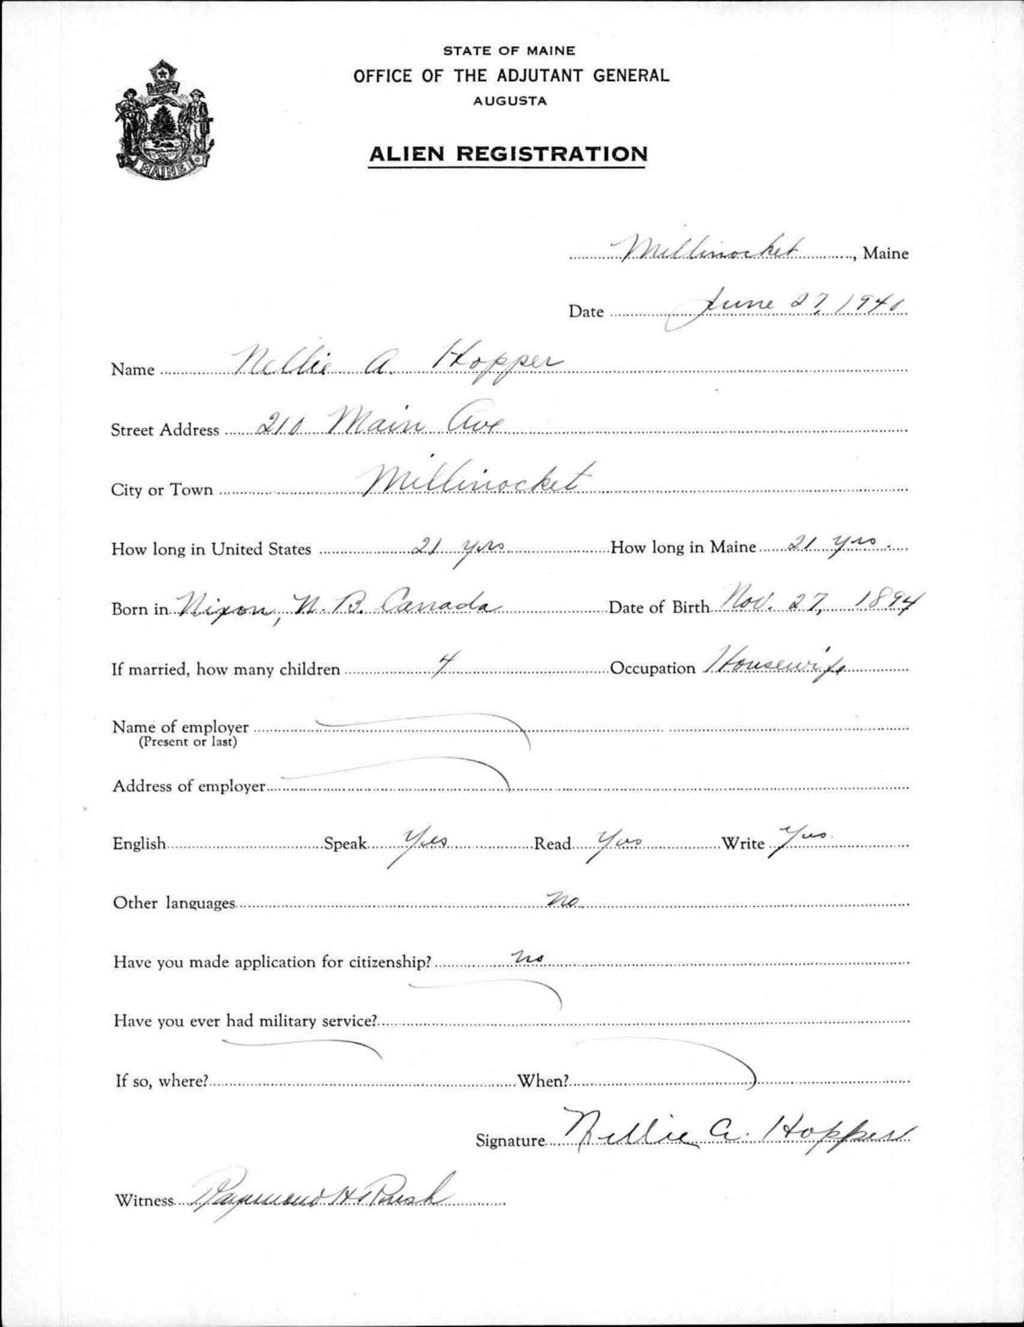 STATE OF MAINE
OFFICE OF THE ADJUTANT GENERAL
AUGUSTA
ALIEN REGISTRATION
MAINE
Millinocket, Maine
Date June 27, 1940
Name Nellie A. Hopper
Street Address 210 Main Ave
City or Town Millinocket
How long in United States 21 yrs How long in Maine 21 yrs.
Born in Nixon, N. B. Canada Date of Birth Nov. 27, 1894
If married, how many children 4 Occupation Housewife
Name of employer
(Present or last)
Address of employer
English Speak Yes Read Yes Write Yes
Other languages no
Have you made application for citizenship? no
Have you ever had military service?
If so, where? When?
Signature Nellie A. Hopper
Witness Raymond H. Rush